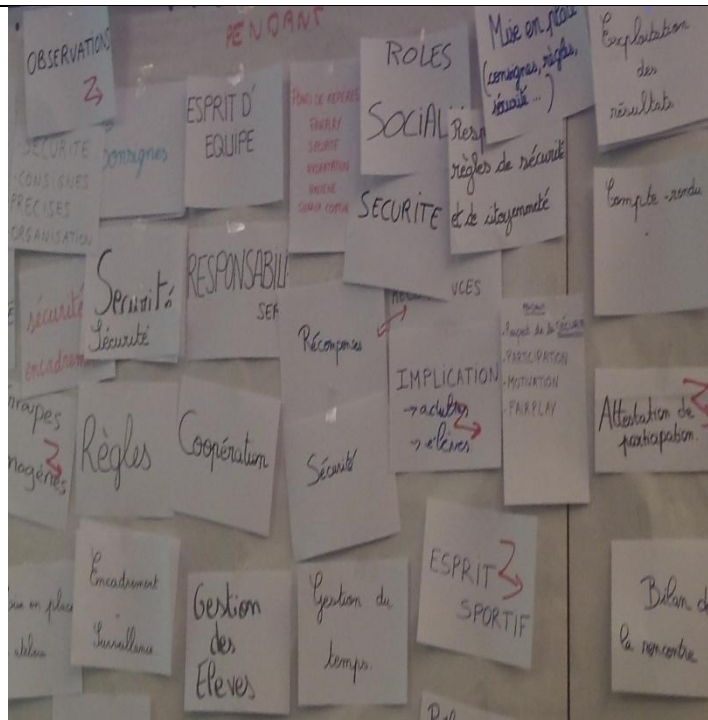 PENDANT
OBSERVATIONS
SECURITE
CONSIGNES
PRECISES
ORGANISATION
consignes
ESPRIT D'
EQUIPE
FAIRPLAY
SECURITE
HYDRATATION
ROLES
SOCIAU
SECURITE
Mise en place
(consignes, règles,
sécurité...)
Resp
règles de sécurité
et de citoyenneté
Exploitation
des
résultats
Compte-rendu
sécurité
encadrem
Sécurité
Sécurité
RESPONSABILI
SER
Récompenses
UCES
IMPLICATION
→ adultes
→ élèves
Respect de la sécurité
- PARTICIPATION
- MOTIVATION
- FAIRPLAY
Attestation de
participation.
roupes
mogènes
Règles
Coopération
Sécurité
en place
Encadrement
Surveillance
Gestion
des
Elèves
Gestion du
temps.
ESPRIT
SPORTIF
Bilan d
la rencontre